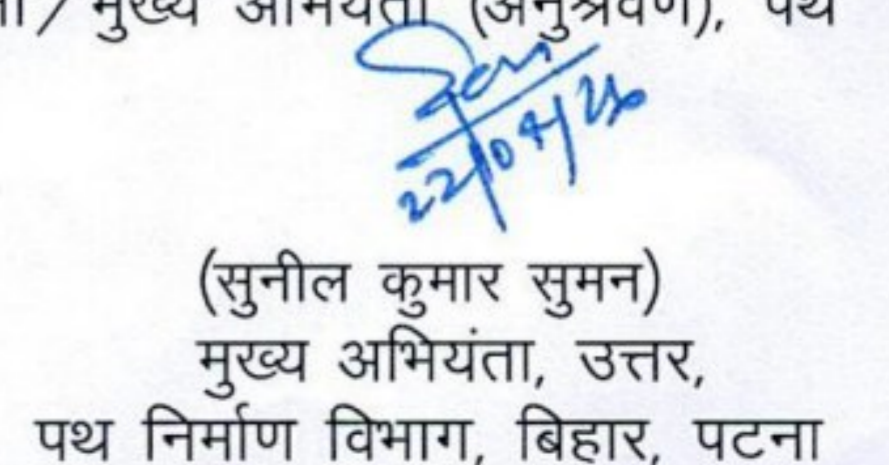 / मुख्य अभियंता (अनुश्रवण), पथ
22/04/26
(सुनील कुमार सुमन)
मुख्य अभियंता, उत्तर,
पथ निर्माण विभाग, बिहार, पटना